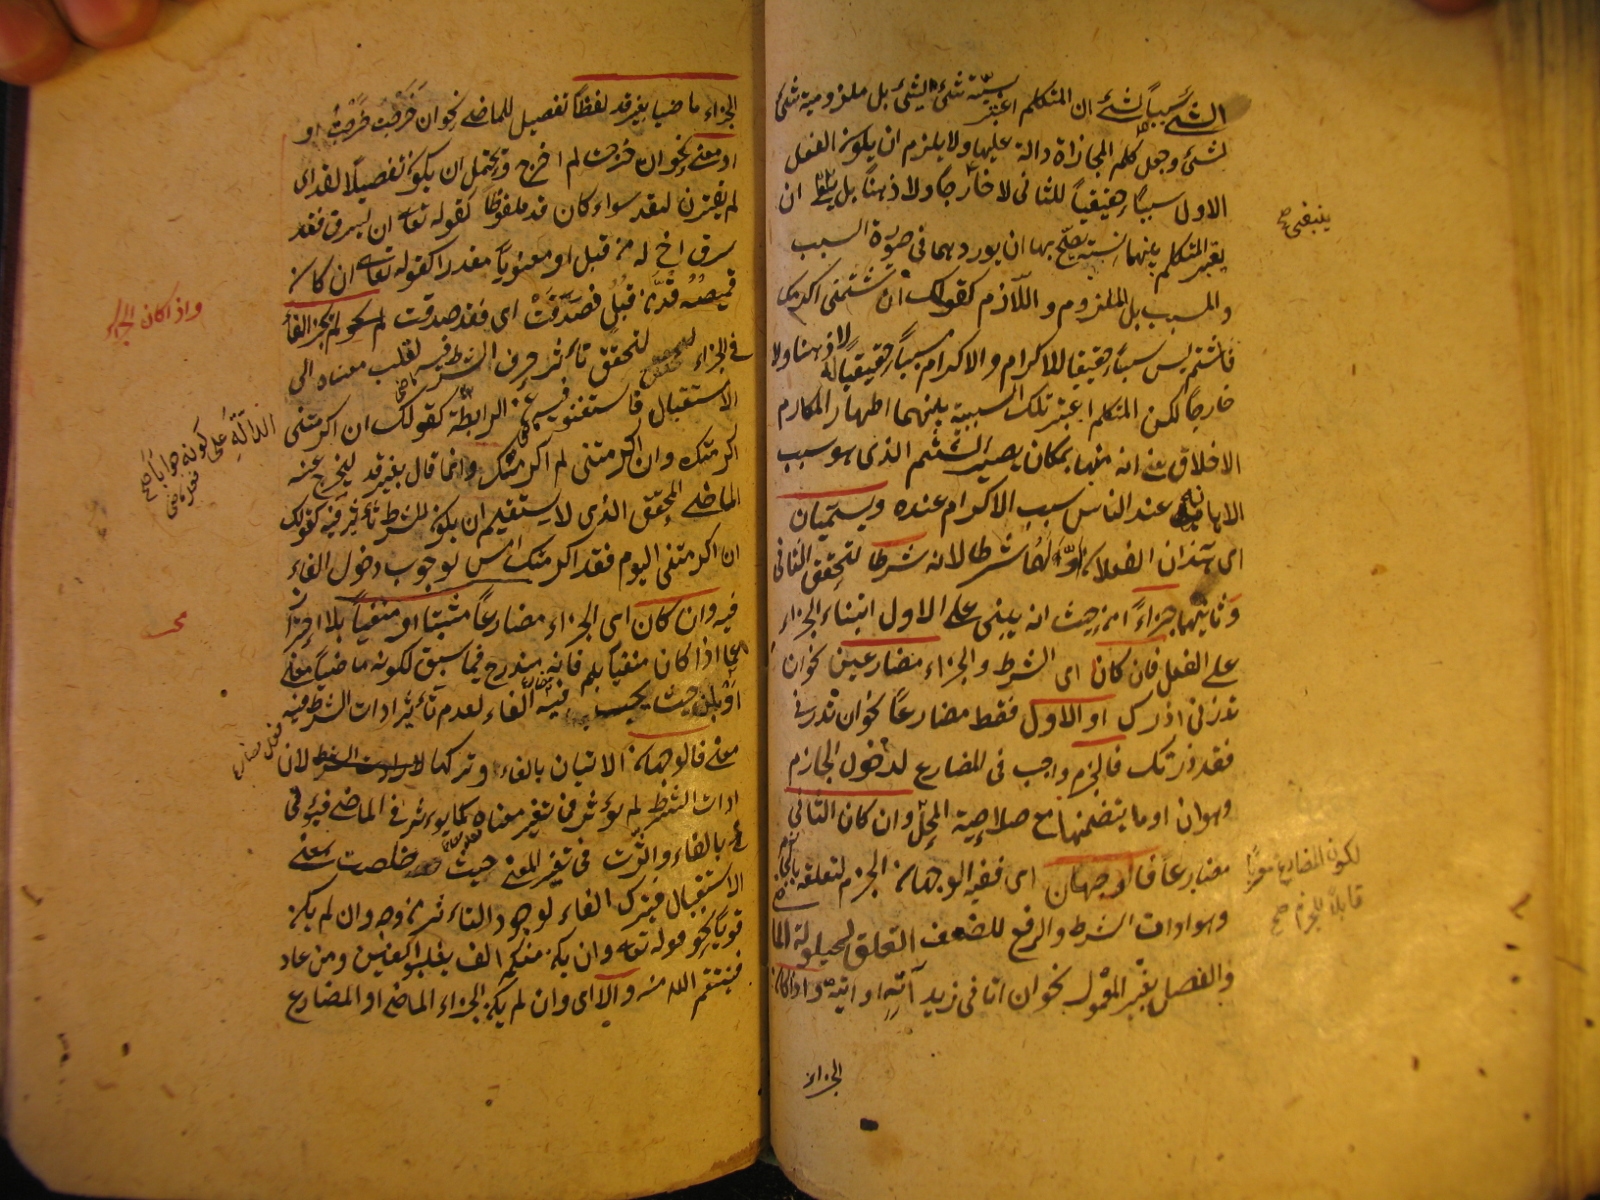 الشئ سببا لشئ ان المتكلم اعتبر سببية شئ لشئ بل ملزومية شئ
لشئ وجعل كلم المجازاة دالة عليها ولا يلزم ان يكون الفعل
الاول سببا حقيقيا للثانى لا خارجا ولا ذهنا بل ينبغى ان
يعتبر المتكلم بينهما نسبة يصح بها ان يوردهما فى صورة السبب
والمسبب بل الملزوم واللازم كقولك ان تشتمنى اكرمك
فالشتم ليس سببا حقيقيا للاكرام والاكرام مسببا حقيقيا له لا ذهنا ولا
خارجا لكن المتكلم اعتبر تلك السببية بينهما اظهارا لمكارم
الاخلاق يعنى انه منها بمكان يصير الشتم الذى هو سبب
الاهانة عند الناس سبب الاكرام عنده ويسميان
اى هذان الفعلان اولهما شرطا لانه شرط لتحقق الثانى
وثانيهما جزاء من حيث انه يبنى على الاول ابتناء الجزاء
على الفعل فان كان اى الشرط والجزاء مضارعين نحو ان
تزرنى ازرك او الاول فقط مضارعا نحو ان تزرنى
فقد زرتك فالجزم واجب فى المضارع لدخول الجازم
وهو ان او ما يتضمنها مع صلاحية المحل وان كان الثانى
مضارعا فالوجهان اى ففيه الوجهان الجزم لتعلقه بالجازم
وهو ادات الشرط والرفع لضعف التعلق لحيلولة الما
والفصل بغير المعمول نحو ان اتانى زيد آته او آتيه واذا كان
الجزاء
ينبغى صح
لكون المضارع معربا
قابلا للجزم صح
الجزاء ماضيا بغير قد لفظا تفصيل للماضى نحو ان خرجت خرجت او
او معنى نحو ان خرجت لم اخرج ويحتمل ان يكون تفصيلا لقد اى
لم يقترن بقد سواء كان قد ملفوظا كقوله تعالى ان يسرق فقد
سرق اخ له من قبل او معنويا مقدرا كقوله تعالى ان كان
قميصه قد من قبل فصدقت اى فقد صدقت لم يجز الفاء
فى الجزاء لتحقق تأثير حرف الشرط فيه لقلب معناه الى
الاستقبال فاستغنوا فيه عن الرابطة كقولك ان اكرمتنى
اكرمتك وان اكرمتنى لم اكرمك وانما قال بغير قد ليخرج عنه
الماضى المحقق الذى لا يستقيم ان يكون للشرط تأثير فيه كقولك
ان اكرمتنى اليوم فقد اكرمتك امس لوجوب دخول الفاء
فيه وان كان اى الجزاء مضارعا مثبتا او منفيا بلا احترازا
عما اذا كان منفيا بلم فانه مندرج فيما سبق لكونه ماضيا معنى
او بلن حيث يجب فيه الفاء لعدم تأثير ادات الشرط فيه
معنى فالوجهان الاتيان بالفاء وتركها لان
ادات الشرط لم يؤثر فى تغير معناه كما يؤثر فى الماضى فيؤتى
بالفاء واثرت فى تغير المعنى حيث خلصت لمعنى
الاستقبال فيترك الفاء لوجود التاثير من وجه وان لم يكن
قويا نحو قوله تعالى وان يكن منكم الف يغلبوا الفين ومن عاد
فينتقم الله منه والا اى وان لم يكن الجزاء الماضى او المضارع
واذا كان الجزاء
الدالة على كونه جوابا صح